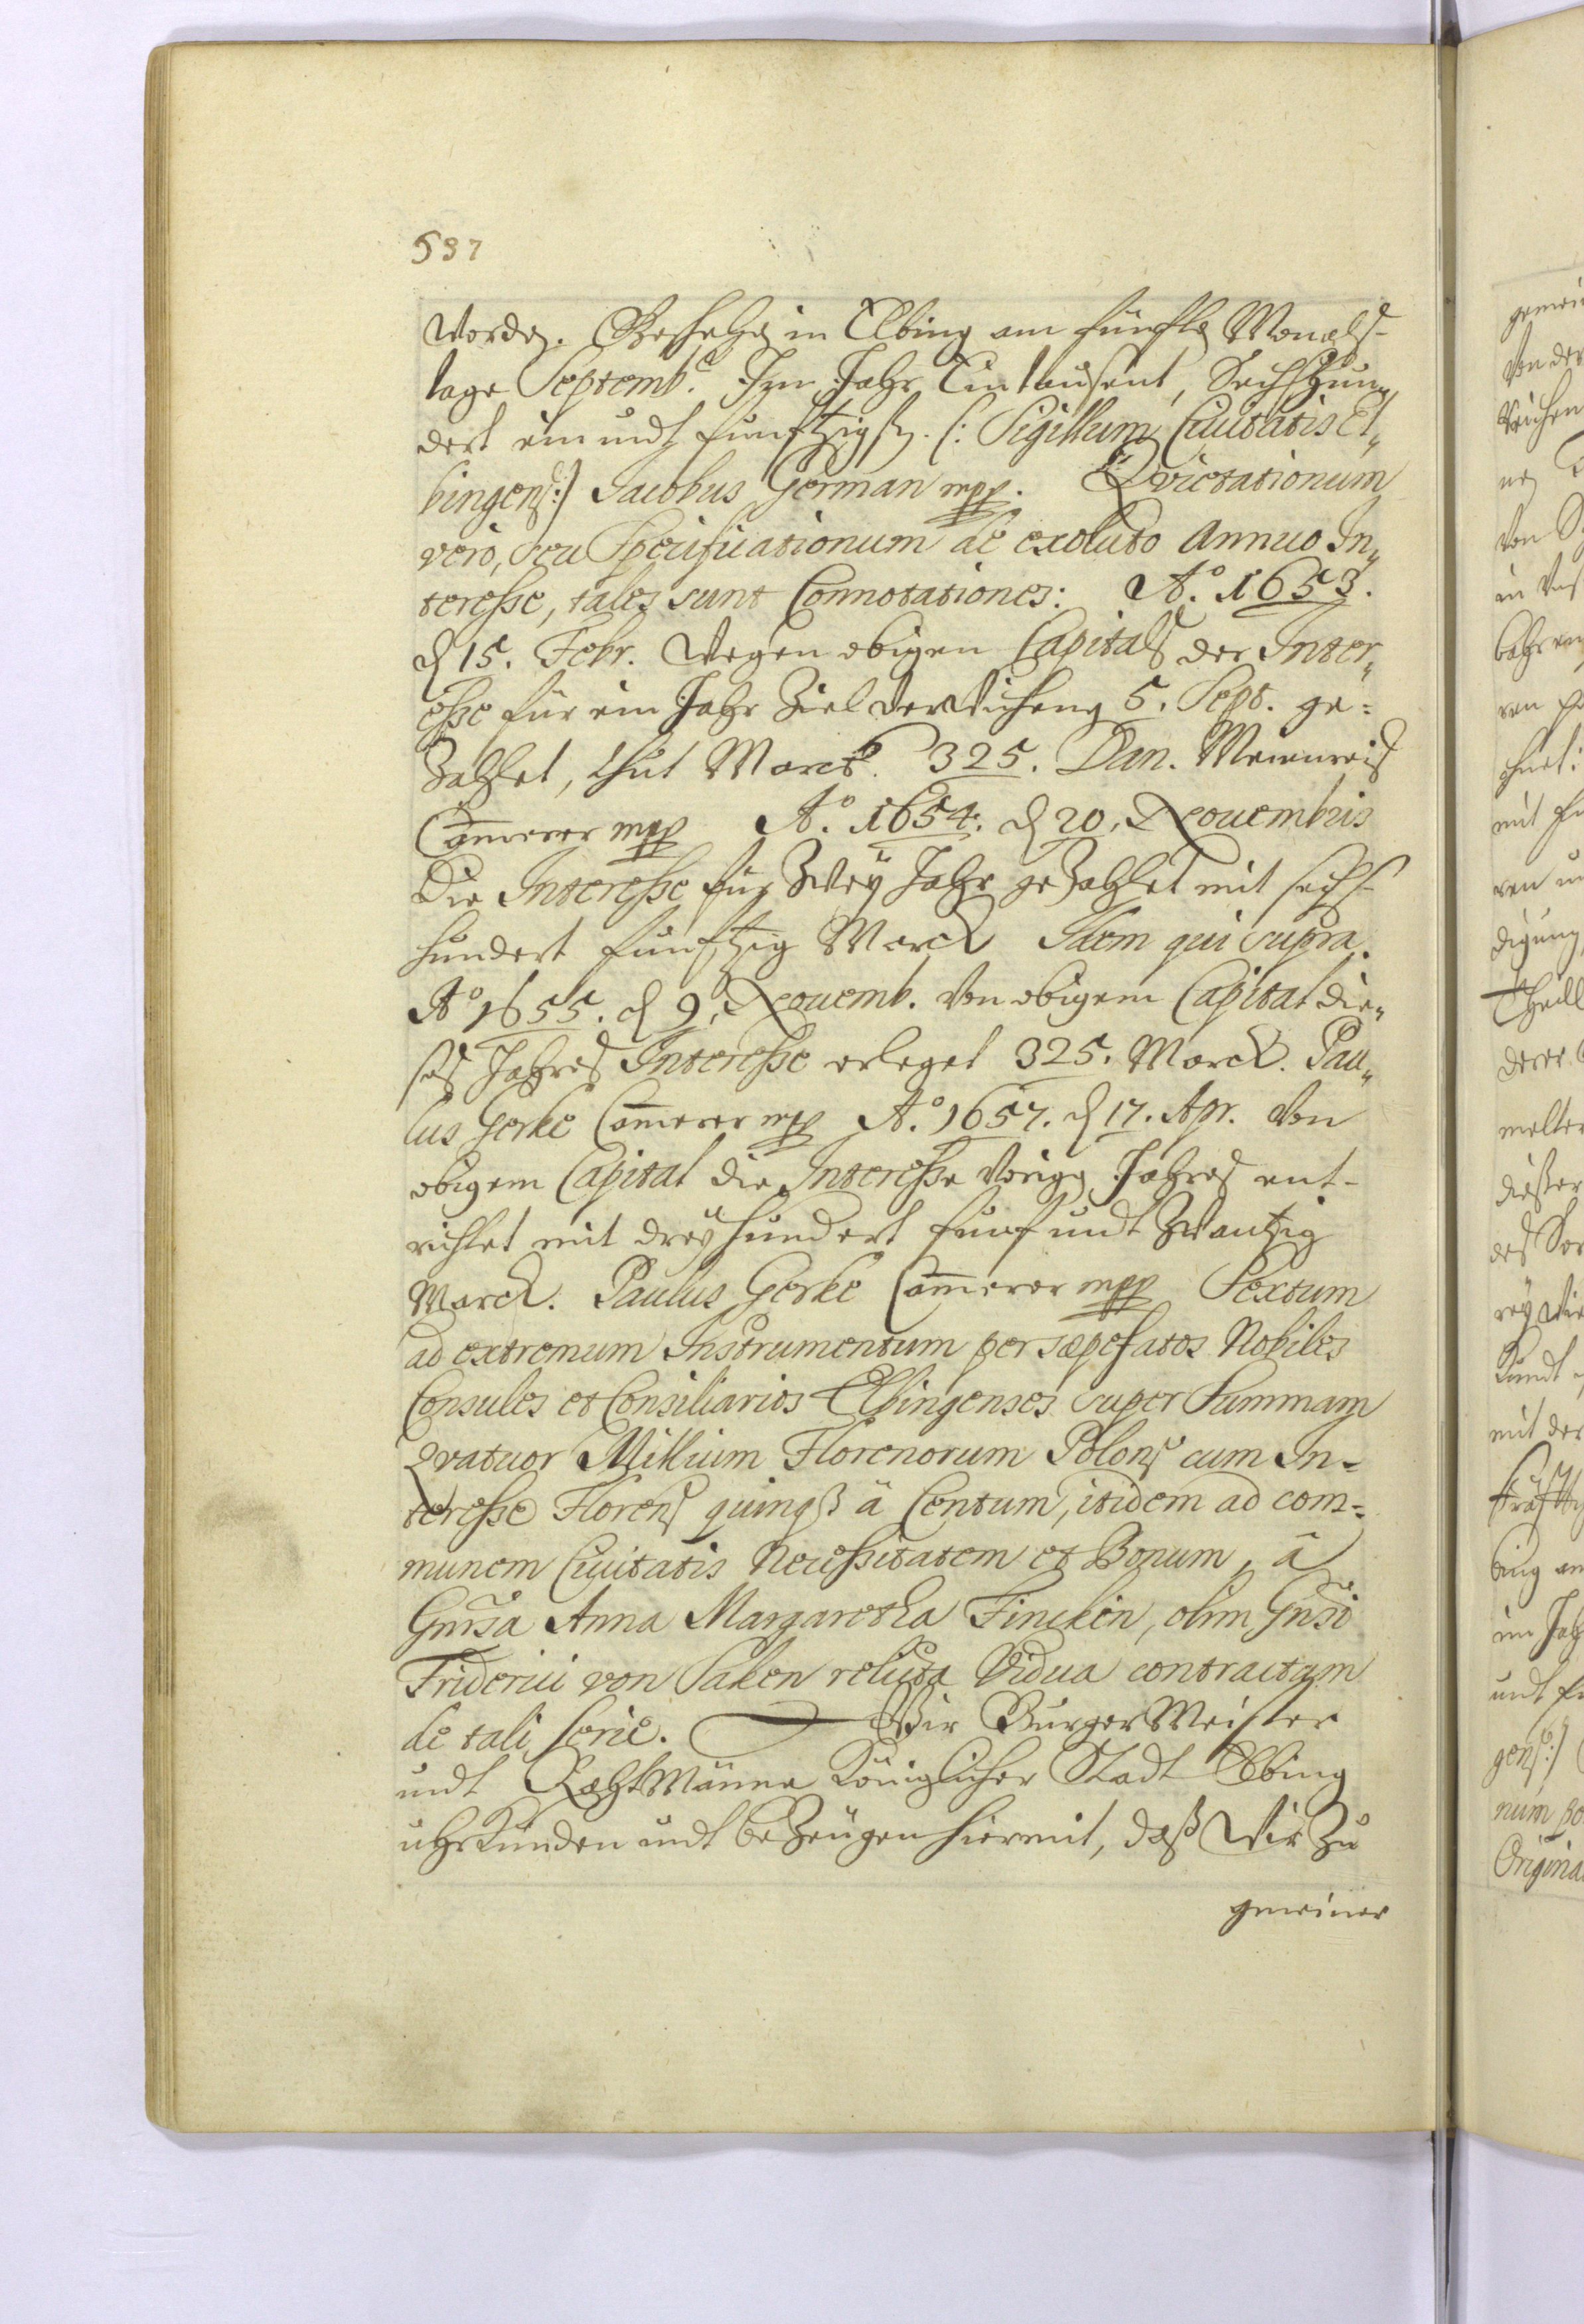 537
worden. Geschehen in Elbing am fünfften Monats-
tage Septemb. Im Jahr Eintausent, Sechshun„
dert ein undt funfftzigsten. (: Sigillum Ciuitatis El„
bingens:) Jacobus German mpp. Qvietationum
vero, seu Specificationum de exoluto Annuo In„
teresse, tales sunt Connotationes: A.º 1653.
d 15. Febr. wegen obigen Capitals der Inter„
esse für ein Jahr Ziel verwichenen 5. Sept. ge=
zahlet, thut March. 325. Dan. Meienreis
Cammerer mpp A.º 1654. d 20. Nouembris
Die Interesse für Zwey Jahr gezahlet mit sechs-
hundert funfftzig Marck Idem qui supra.
Aº 1655. d 9. Nouemb. von obigem Capital die„
ses Jahres Interesse erleget 325. Marck. Pau„
lus Gerke Cammerer mpp A.º 1657. d 17. Apr. Von
obigem Capital die Interesse vorigen Jahres ent-
richtet mit dreyhundert funf undt Zwantzig
Marck. Paulus Gerke Cammerer mpp Sextum
ad extremum Instrumentum per sæpefatos Nobiles
Consules et Consiliarios Elbingenses super Summam
Qvatuor Millium Florenorum Polons cum In-
teresse Florens quinqß â Centum, itidem ad com=
munem Ciuitatis Necessitatem et Bonum, â
Gnrsa Anna Margaretha Finckin, olim Gnsi
Friderici von Saken relicta Vidua contractam
de tali serie. Wir BurgerMeister
undt RahtManne Königlicher Stadt Elbing
uhrkunden undt bezeugen hiermit, daß wir zu
gemeiner